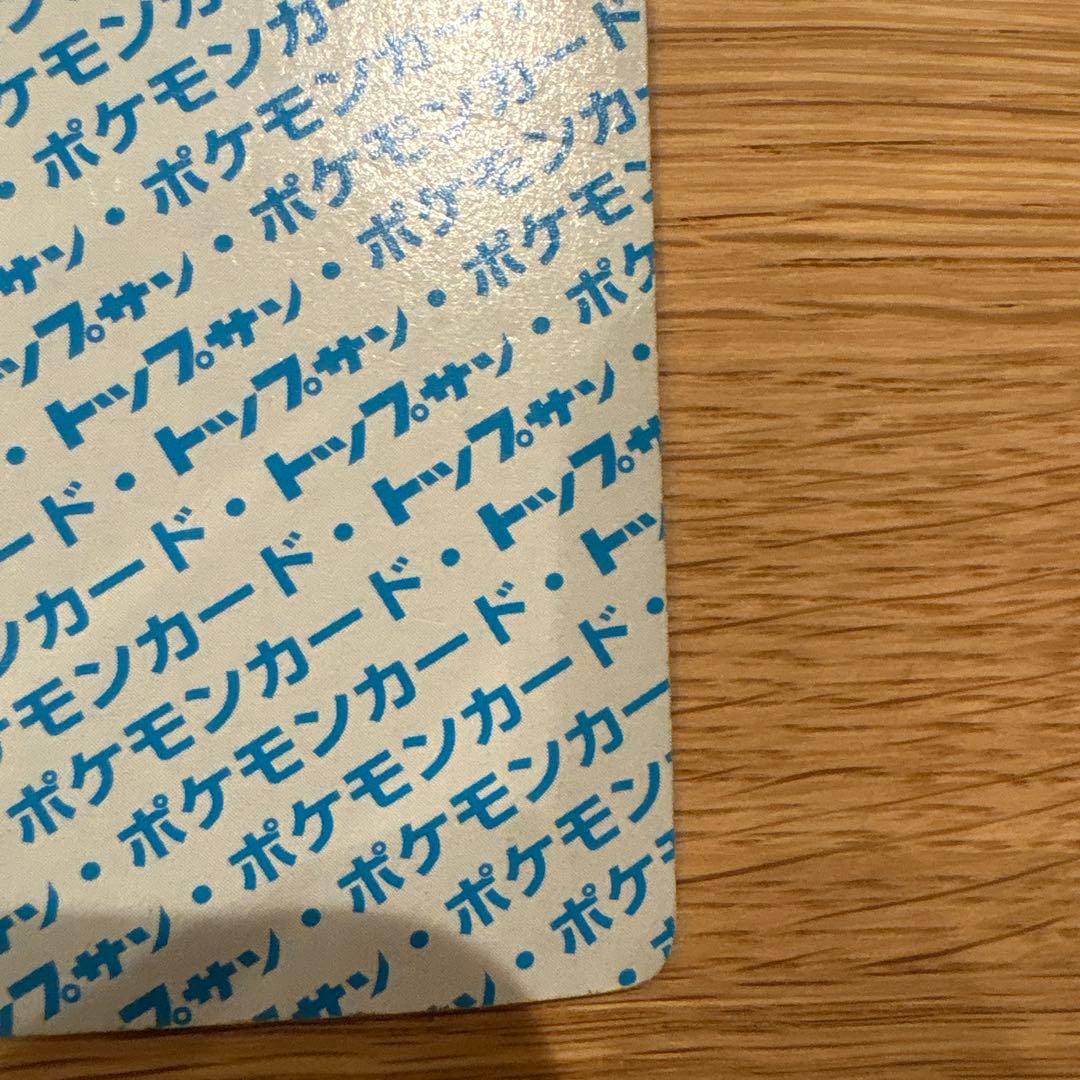 ケモンカ
・ポケモンカ
サン・ポケモンカー
ップサン・ポケモンカード
・トップサン・ポケモンカー
ード・トップサン・ポケモン
ンカード・トップサン・ポケ
ケモンカード・トップサン・
ポケモンカード・トップサ
・ポケモンカード・トッ
サン・ポケモンカード・
ップサン・ポケモンカー
プサン・ポケモン
サン・ポケ
ン・